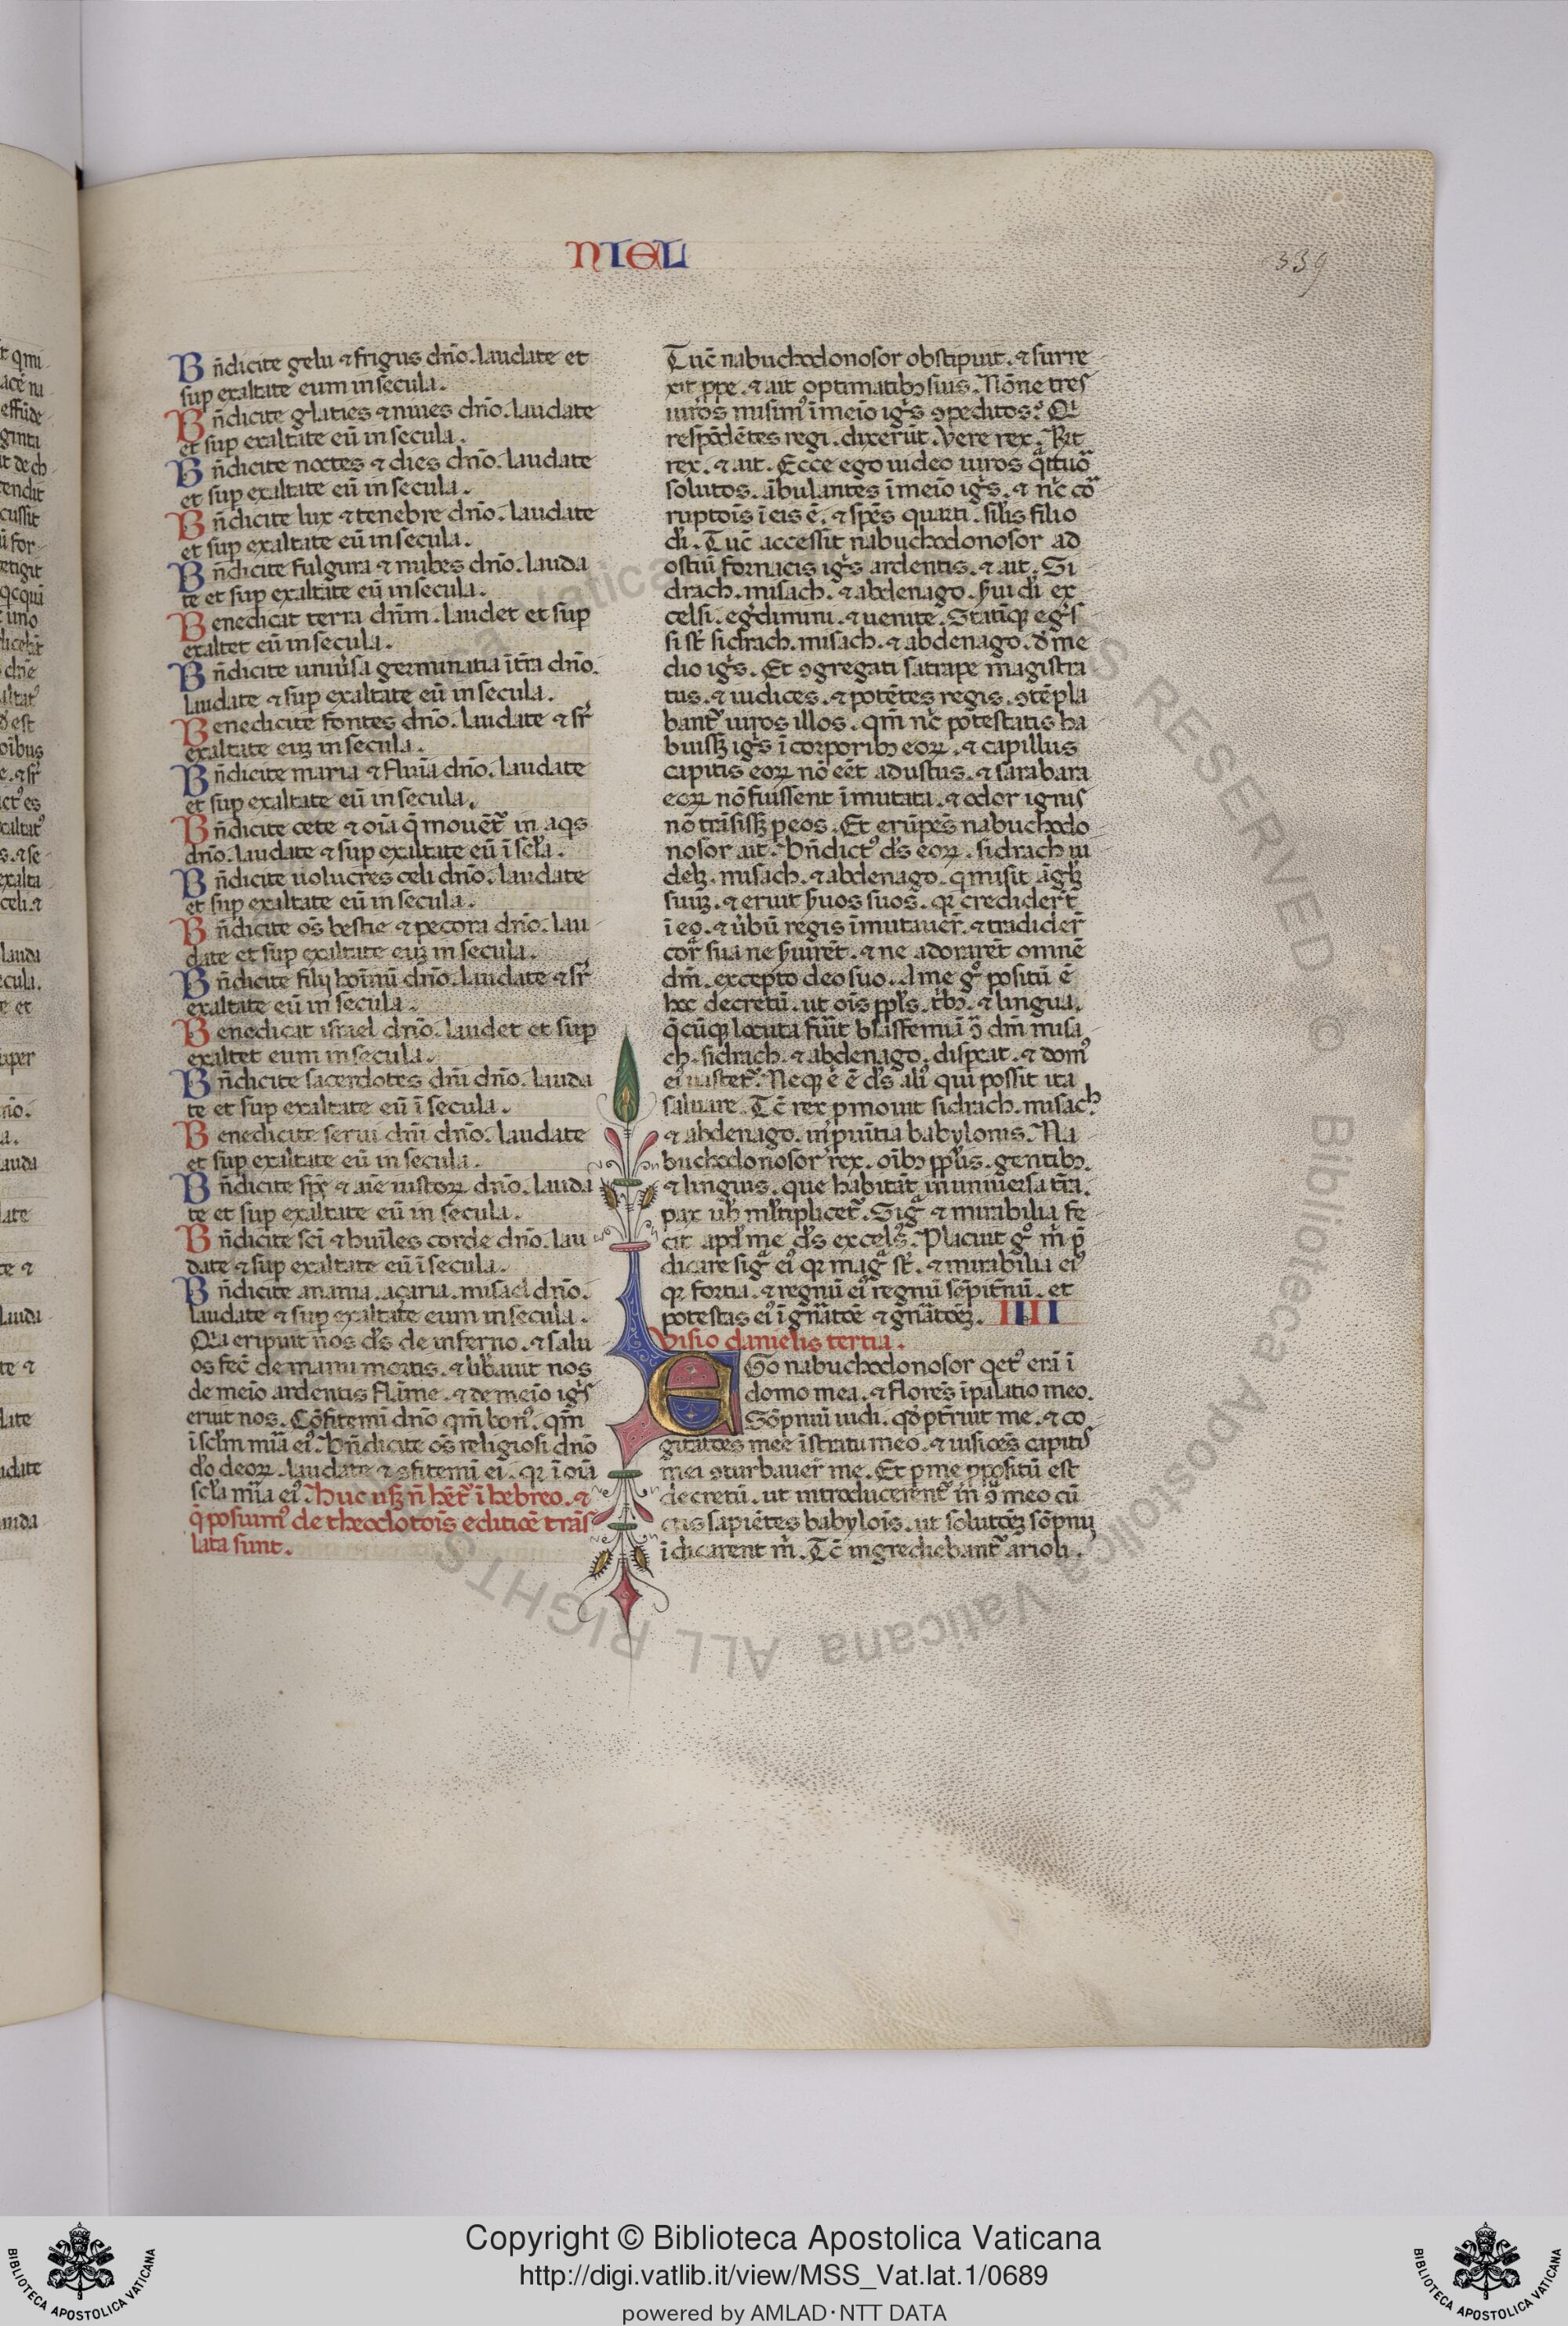 NIEL
339
Bn̄dicite gelu ⁊ frigus dn̄o. laudate et
sup exaltate eum in secula.
Bn̄dicite glacies ⁊ niues dn̄o. laudate
et sup exaltate eū in secula.
Bn̄dicite noctes ⁊ dies dn̄o. laudate
et sup exaltate eū in secula.
Bn̄dicite lux ⁊ tenebre dn̄o. laudate
et sup exaltate eū in secula.
Bn̄dicite fulgura ⁊ nubes dn̄o. lauda
te et sup exaltate eū in secula.
Benedicat terra dn̄m. laudet et sup
exaltet eū in secula.
Bn̄dicite uniu͛sa germinatia ī tr̄a dn̄o.
laudate ⁊ sup exaltate eū in secula.
Benedicite fontes dn̄o. laudate ⁊ sr̄
exaltate euꝫ in secula.
Bn̄dicite maria ⁊ flui̅a dn̄o. laudate
et sup exaltate eū in secula.
Bn̄dicite cete ⁊ oīa q̄ mouēt᷑ in aqs
dn̄o. laudate ⁊ sup exaltate eū ī scl̄a.
Bn̄dicite uolucres celi dn̄o. laudate
et sup exaltate eū in secula.
Bn̄dicite os̄ bestie ⁊ pecora dn̄o. lau
date et sup exaltate euꝫ in secula.
Bn̄dicite filij hoīnū dn̄o. laudate ⁊ sr̄
exaltate eū in secula.
Benedicat israel dn̄o. laudet et sup
exaltet eum in secula.
Bn̄dicite sacerdotes dn̄i dn̄o. lauda
te et sup exaltate eū ī secula.
Benedicite serui dn̄i dn̄o. laudate
et sup exaltate eū in secula.
Bn̄dicite spc̄ ⁊ aīe iustoꝝ dn̄o. lauda
te et sup exaltate eū in secula.
Bn̄dicite sc̄i ⁊ huīles corde dn̄o. lau
date ⁊ sup exaltate eū ī secula.
Bn̄dicite anania. açaria. misael dn̄o.
laudate ⁊ sup exaltate eum in secula.
Q̄a eripuit nos ds̄ de inferno. ⁊ salu
os fec̄ de manu mortis. ⁊ lib͛auit nos
de meīo ardentis flām̄e. ⁊ de meīo igīs
eruit nos. Cōfitemī dn̄o qm̄ bonꝰ. qm̄
ī scl̄m mīa eiꝰ. bn̄dicite os̄ religiosi dn̄o
d̄o deoꝝ. laudate ⁊ ꝯfitemī ei. qꝛ ī oīa
scl̄a mīa eiꝰ. huc usꝫ n̄ hēt᷑ ī hebreo. ⁊
q̄ posuimꝰ de theodotoīs editiōe trās
lata sunt.
Tūc nabuchodonosor obstipuit. ⁊ surre
xit ꝓpe. ⁊ ait optimatibꝫ suis. Nōne tres
uiros misimꝰ ī meīo igīs ꝯpeditos? Q̄i
respōdētes regi. dixerūt. Vere rex. Rn̄t
rex. ⁊ ait. Ecce ego uideo uiros q̄ttuō
solutos. ābulantes ī meīo igīs. ⁊ nc̄ cō
ruptoīs ī eis ē. ⁊ spēs quarti. sil̄is filio
dī. Tūc accessit nabuchodonosor ad
ostiū fornacis igīs ardentis. ⁊ ait. Si
drach. misach. ⁊ abdenago. ẏui di ex
celsi. eg͛dimini. ⁊ uenite. Statīqꝫ eg͛s
si st̄ sidrach. misach. ⁊ abdenago. đ me
dio igīs. Et ꝯgregati satrape magistra
tus. ⁊ iudices. ⁊ potētes regis. ꝯtēpla
bant᷑ uiros illos. qm̄ nc̄ potestatis ha
buissꝫ igīs ī corporibꝫ eoꝝ. ⁊ capillus
capitis eoꝝ nō eēt adustus. ⁊ sarabara
eoꝝ nō fuissent īmutata. ⁊ odor ignis
nō trāsissꝫ ꝑ eos. Et erūpēs nabuchodo
nosor ait. bn̄dictꝰ ds̄ eoꝝ. sidrach ui
delꝫ. misach. ⁊ abdenago. q̇ misit āglꝫ
suuꝫ. ⁊ eruit ẏuos suos. qꝛ credidert̄
ī eo. ⁊ ūbū regis īmutauer̄. ⁊ tradider̄
cor̄ sua ne ẏuirēt. ⁊ ne adorarēt omnē
dm̄. excepto deo suo. A me gͦ positū ē
hoc decretū. ut oīs ppl̄s. t͛bꝫ. ⁊ lingua.
q̄cūqꝫ locuta fūit blasfemiā ꝯ̄ dm̄ misa
ch. sidrach. ⁊ abdenago. disp̄eat. ⁊ domꝰ
eiꝰ uastet᷑. Neqꝫ ē ē ds̄ aliꝰ qui possit ita
saluare. Tc̄ rex ꝓmouit sidrach. misach.
⁊ abdenago. in ꝓuītia babylonis. Na
buchodonosor rex. oībꝫ ppl̄is. gentibꝫ.
⁊ linguis. que habitāt in uniuersa tr̄a.
pax uob̄ ml̄tiplicet᷑. Sigͣ ⁊ mirabilia fe
cit apd̄ me ds̄ excelsꝰ. Placuit gͦ m̄ p̄
dicare sigͣ eiꝰ qꝛ magͣ st̄. ⁊ mirabilia eiꝰ
qꝛ fortia. ⁊ regnū eiꝰ regnū sēpit͛nū. et
potestas eiꝰ ī gn̄atōē ⁊ gn̄atōēꝫ. IIII
Visio danielis tertia.
EGo nabuchodonosor qetꝰ erā ī
domo mea. ⁊ florēs ī palatio meo.
Sōpniū uidi. qđ ꝑt͛ruit me. ⁊ co
gitatōēs mee ī stratu meo. ⁊ uisiōēs capitis
mei ꝯturbauer̄ me. Et ꝑ me ꝓpositū est
decretū. ut introducerent᷑ in ꝯ̄ meo cū
ctis sapiētes babyloīs. ut solutōēꝫ sōpnij
īdicarent m̄. Tc̄ ingrediebant᷑ arioli.
Biblioteca Apostolica Vaticana ALL RIGHTS RESERVED ©
Copyright © Biblioteca Apostolica Vaticana
http://digi.vatlib.it/view/MSS_Vat.lat.1/0689
powered by AMLAD･NTT DATA
BIBLIOTECA APOSTOLICA VATICANA
BIBLIOTECA APOSTOLICA VATICANA